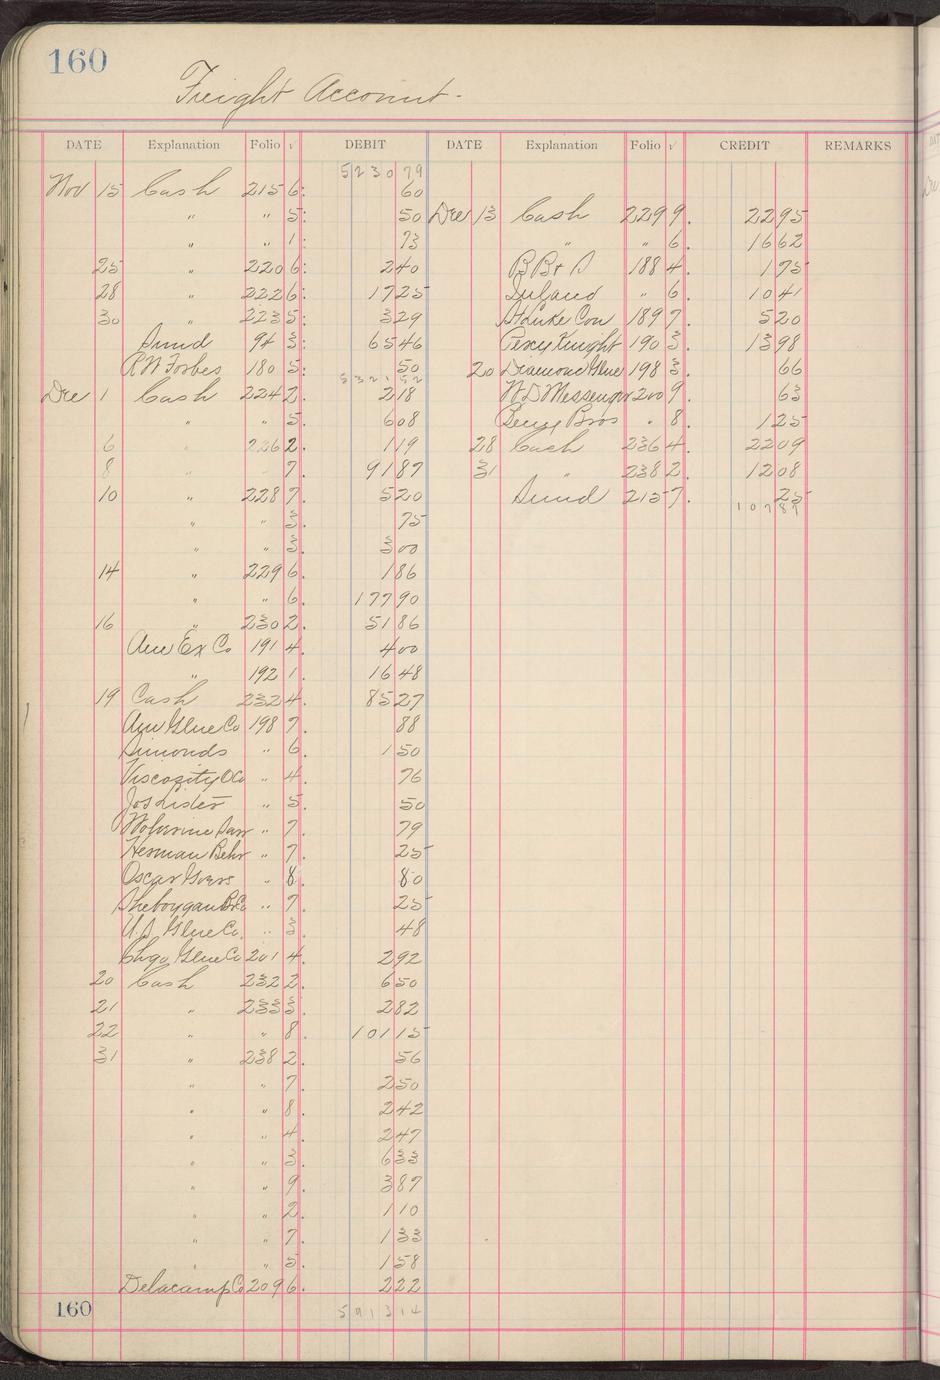 160
Freight Account -
DATE Explanation Folio √ DEBIT DATE Explanation Folio √ CREDIT REMARKS
5230 79
Nov 15 Cash 215 6: 60
" " 5: 50 Dec 13 Cash 229 9. 22 95
" " 1: 73 " " 6. 16 62
25 " 220 6: 2 40 B B & S 188 4. 1 75
28 " 222 6: 17 25 Inland " 6. 10 41
30 " 223 5: 3 29 St Luke Con 189 7. 5 20
Sund 94 3: 65 46 Percy Knight 190 3. 13 98
R W Forbes 180 5: 50 20 Diamond Glue 198 3. 66
5321 52
Dec 1 Cash 224 2. 2 18 W D Messenger 200 9. 63
" " 5. 6 08 Bros " 8. 1 25
6 " 226 2. 1 19 28 Cash 236 4. 22 09
8 " 7. 91 87 31 " 238 2. 12 08
10 " 228 7. 5 20 Sund 215 7. 25
107 87
" " 3. 75
" " 3. 3 00
14 " 229 6. 1 86
" " 6. 177 90
16 " 230 2. 51 86
Am Ex Co 191 4. 4 00
" 192 1. 16 48
19 Cash 232 4. 85 27
Am Glue Co 198 7. 88
Simonds " 6. 1 50
Viscosity O Co " 4. 76
Jos Lister " 5. 50
Wolverine " 7. 79
Herman Behr " 7. 25
Oscar " 8. 80
Sheboygan " 7. 25
U.S. Glue Co. " 3. 48
Chgo Glue Co 201 4. 2 92
20 Cash 232 2. 6 50
21 " 233 3. 2 82
22 " " 8. 101 15
31 " 238 2. 56
" " 7. 2 50
" " 8. 2 42
" " 4. 2 47
" " 3. 6 33
" " 9. 3 87
" " 2. 1 10
" " 7. 1 33
" " 5. 1 58
Delacamp Co 209 6. 2 22
160 5913 14